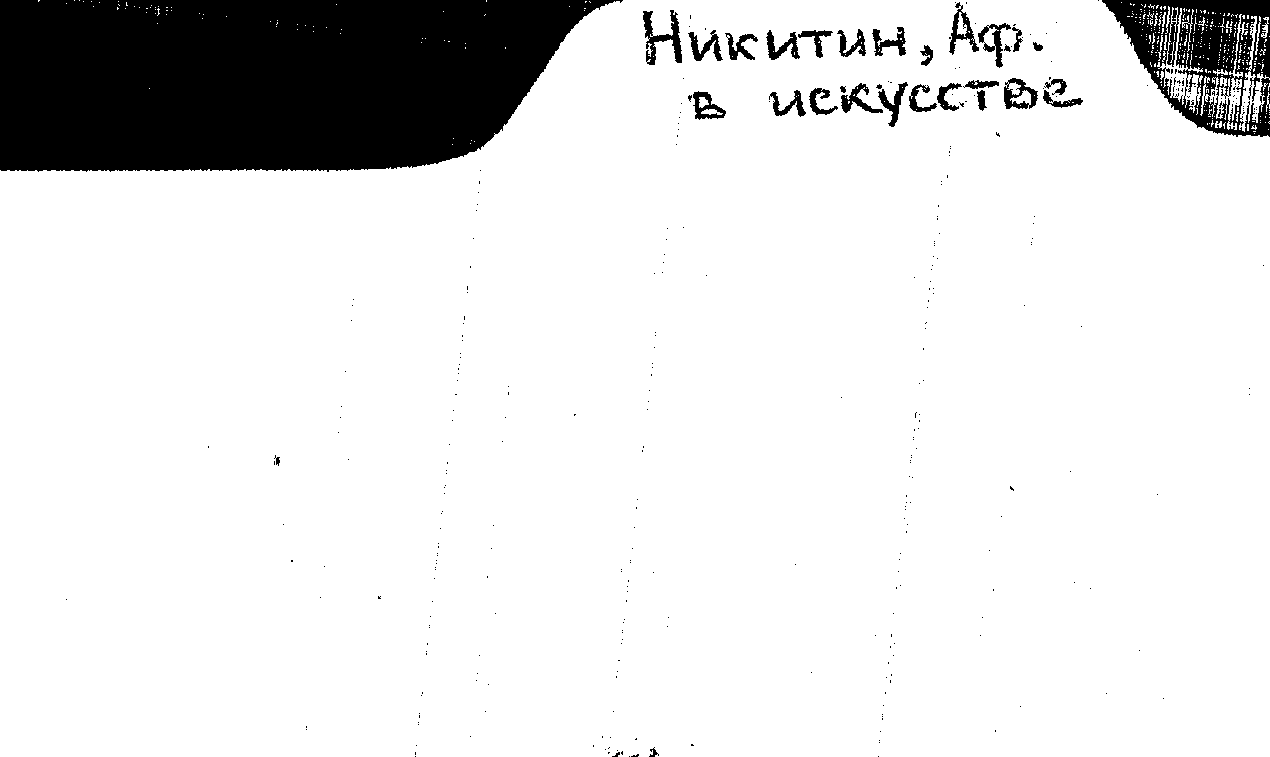 Никитин, Аф.
в искусстве